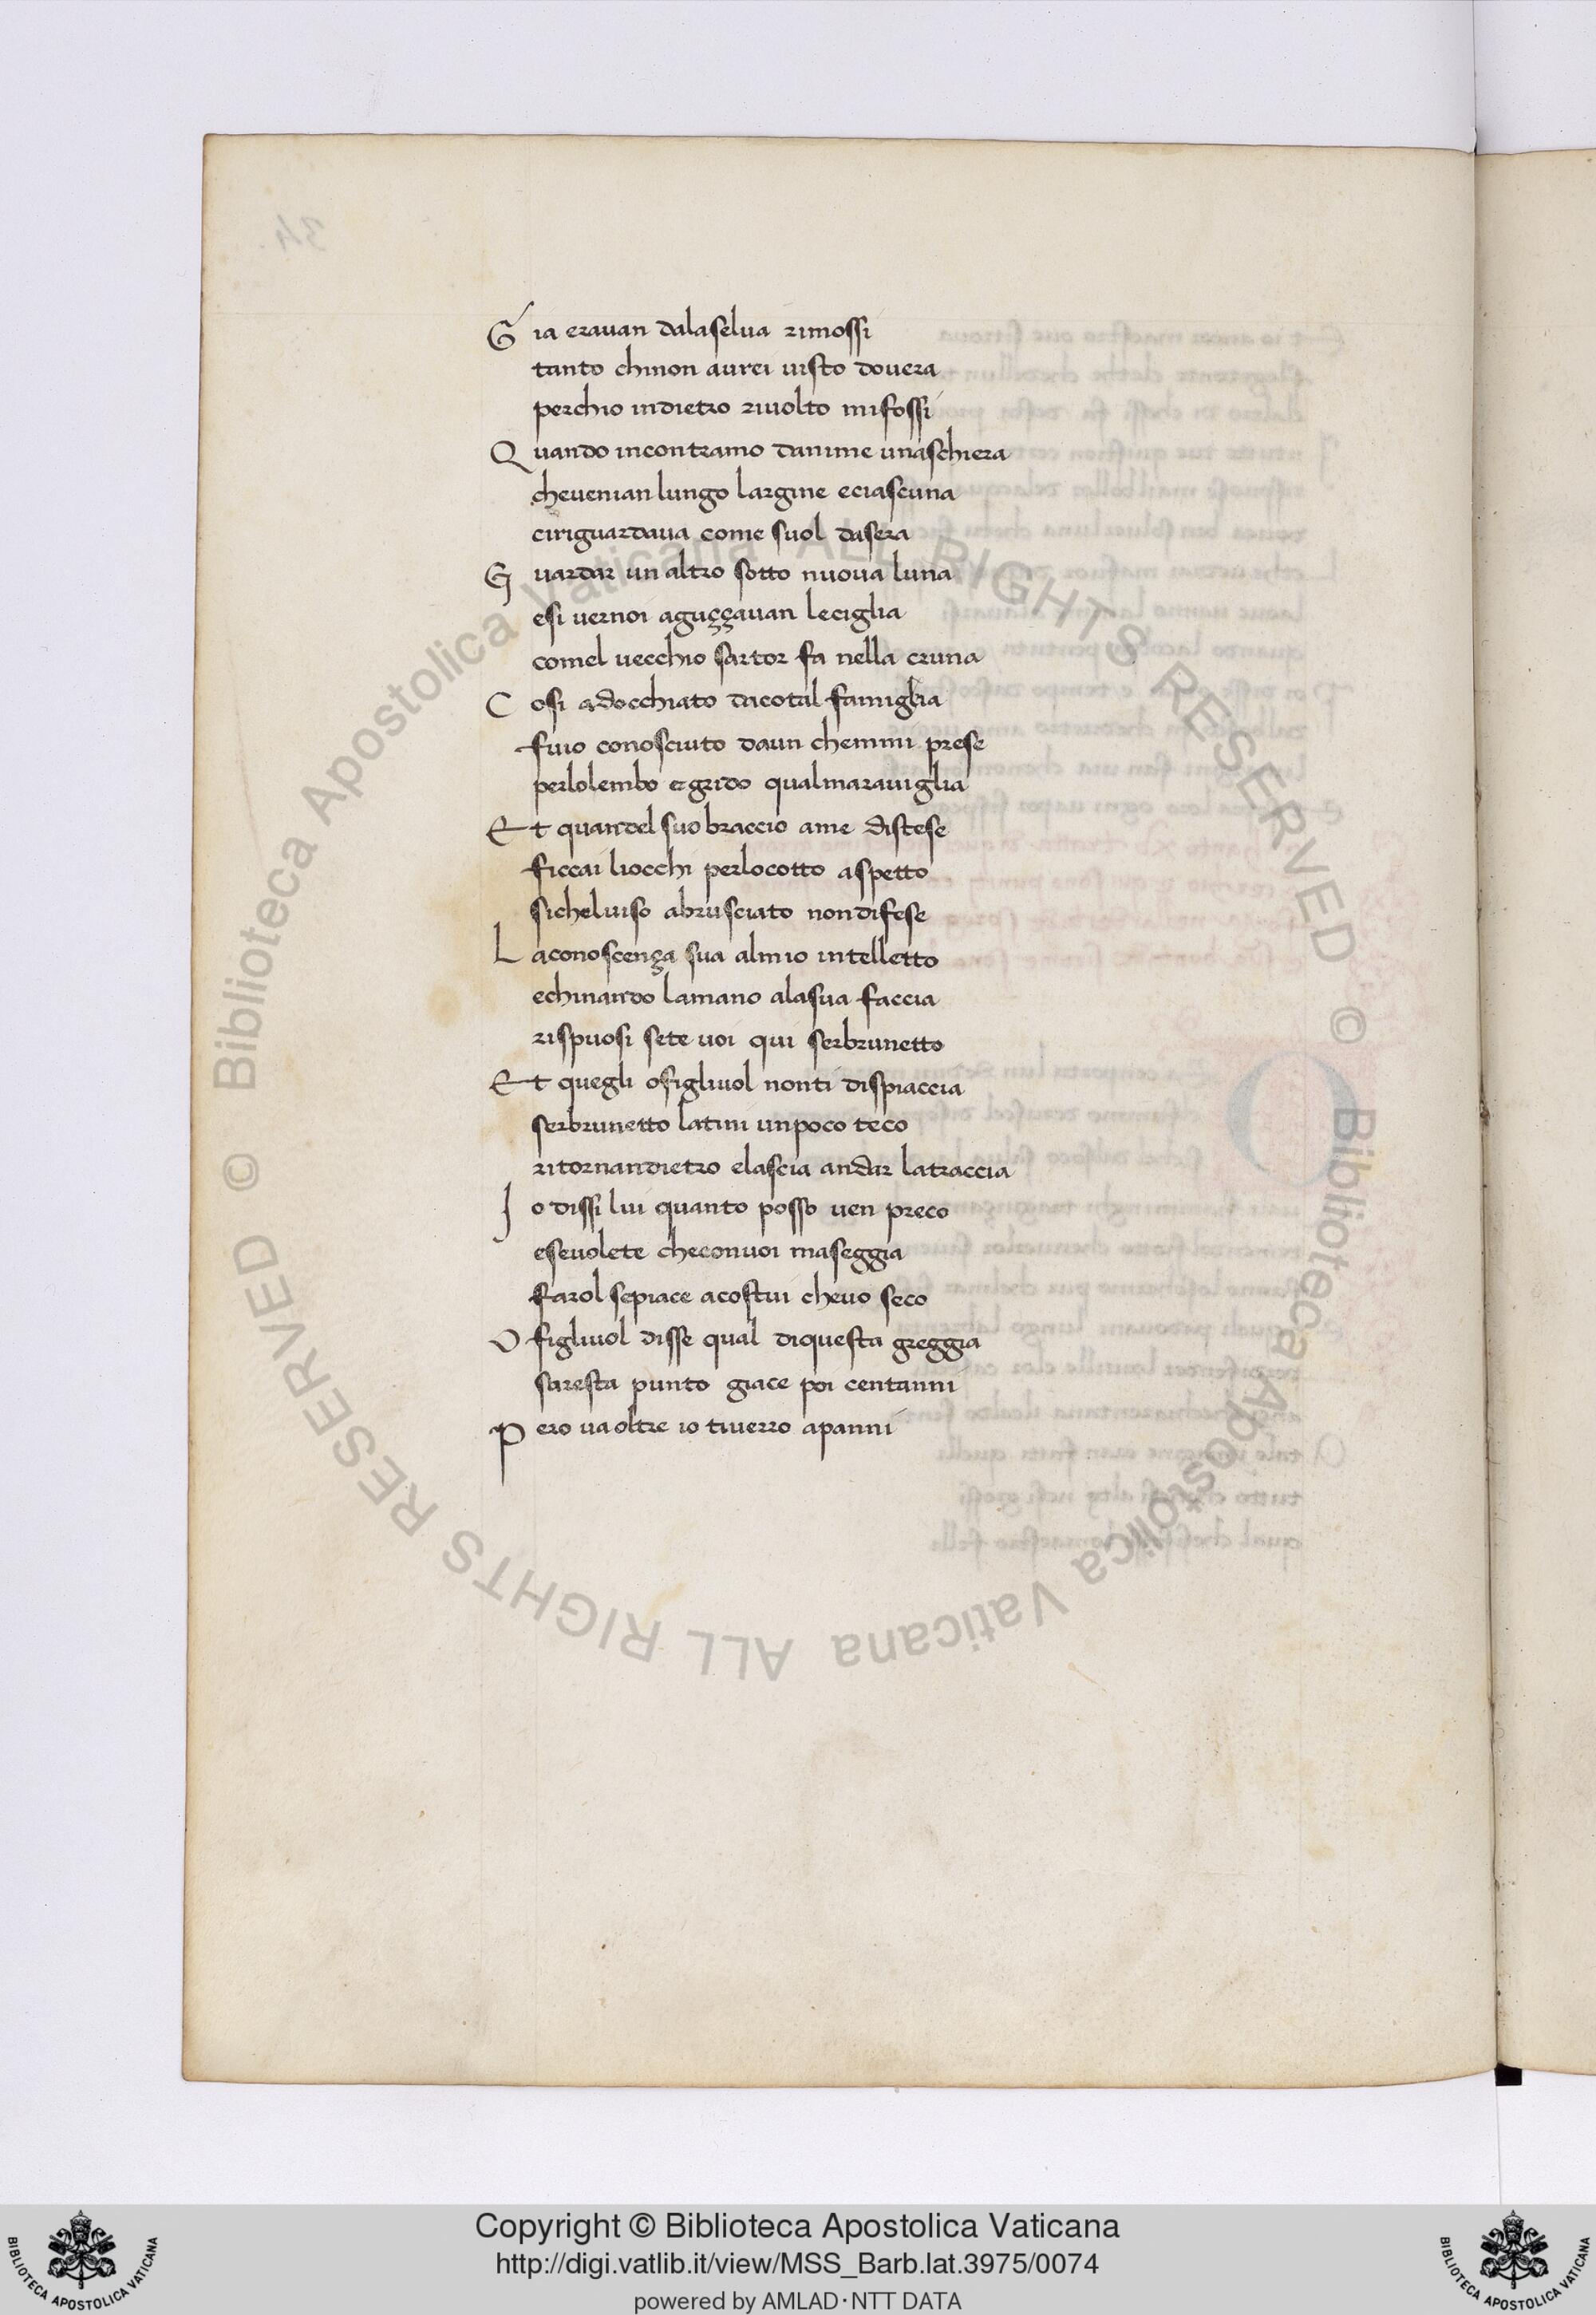 34.
Gia eravan dalaselva rimossi
tanto chinon avrei visto dovera
perchio indietro rivolto mifossi
Quando incontramo danime unaschiera
chevenian lungo largine eciascuna
ciriguardava come suol dasera
Guardar un altro sotto nuova luna
esi vernoi aguççavan leciglia
comel vecchio sartor fa nella cruna
Cosi adocchiato dacotal famiglia
fuio conosciuto daun chemmi prese
perlolembo et grido qualmaraviglia
Et quandel suo braccio ame distese
ficcai liocchi perlocotto aspetto
sichelviso abrusciato nondifese
Laconoscença sua almio intelletto
echinando lamano alasua faccia
rispuosi sete voi qui serbrunetto
Et quegli ofigliuol nonti dispiaccia
serbrunetto latini unpoco teco
ritornandietro elascia andar latraccia
Io dissi lui quanto posso ven preco
esevolete checonvoi maseggia
farol sepiace acostui chevo seco
O figliuol disse qual diquesta greggia
saresta punto giace poi centanni
Pero va oltre io tiverro apanni
© Biblioteca Apostolica Vaticana ALL RIGHTS RESERVED © Biblioteca Apostolica Vaticana ALL RIGHTS RESERVED
Copyright © Biblioteca Apostolica Vaticana
http://digi.vatlib.it/view/MSS_Barb.lat.3975/0074
powered by AMLAD·NTT DATA
BIBLIOTECA APOSTOLICA VATICANA
BIBLIOTECA APOSTOLICA VATICANA